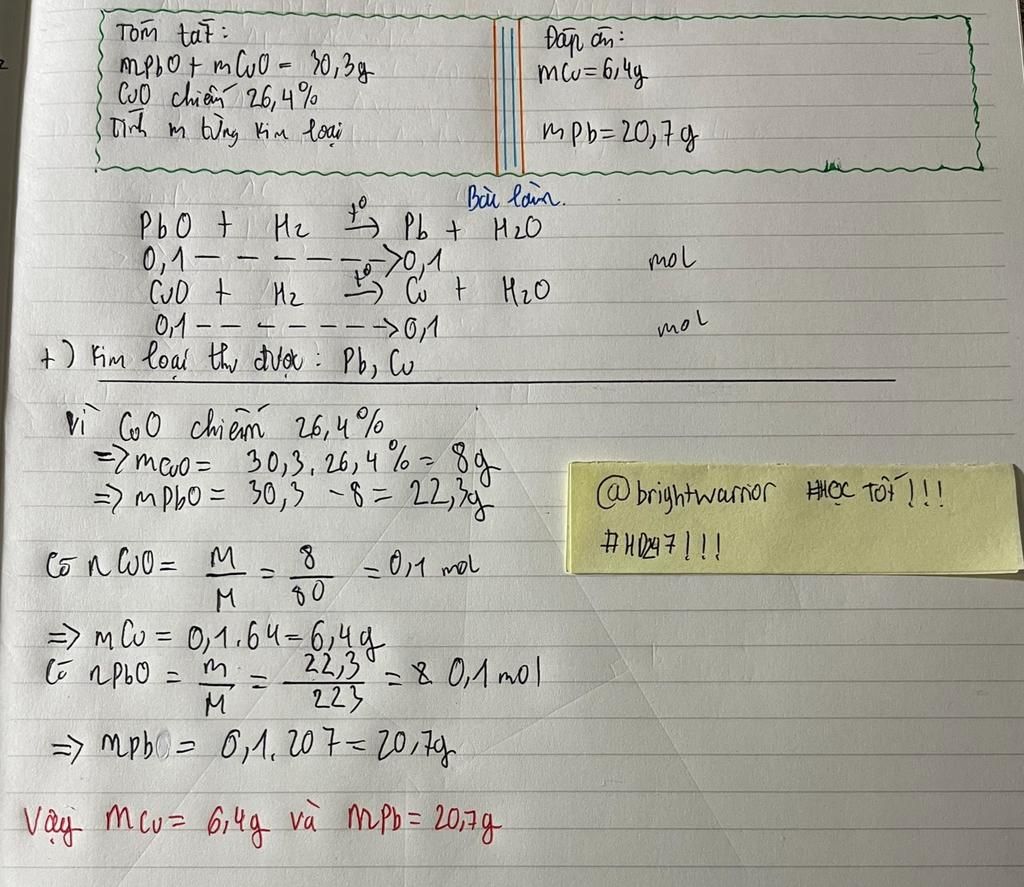 Tóm tắt:
mPbO + mCuO = 30,3g
CuO chiếm 26,4%
Tính m từng kim loại
Đáp án:
mCu = 6,4g
mPb = 20,7g
Bài làm.
PbO + H2 t⁰→ Pb + H2O
0,1 - - - - - - -> 0,1 mol
CuO + H2 t⁰→ Cu + H2O
0,1 - - - - - - -> 0,1 mol
+) Kim loại thu được: Pb, Cu
Vì CuO chiếm 26,4%
=> mCuO = 30,3.26,4% = 8g
=> mPbO = 30,3 - 8 = 22,3g
@brightwarrior #HỌC TỐT!!!
#HD247!!!
Có nCuO = M/M = 8/80 = 0,1 mol
=> mCu = 0,1.64 = 6,4g
Có nPbO = m/M = 22,3/223 = 0,1 mol
=> mPb = 0,1.207 = 20,7g
Vậy mCu = 6,4g và mPb = 20,7g